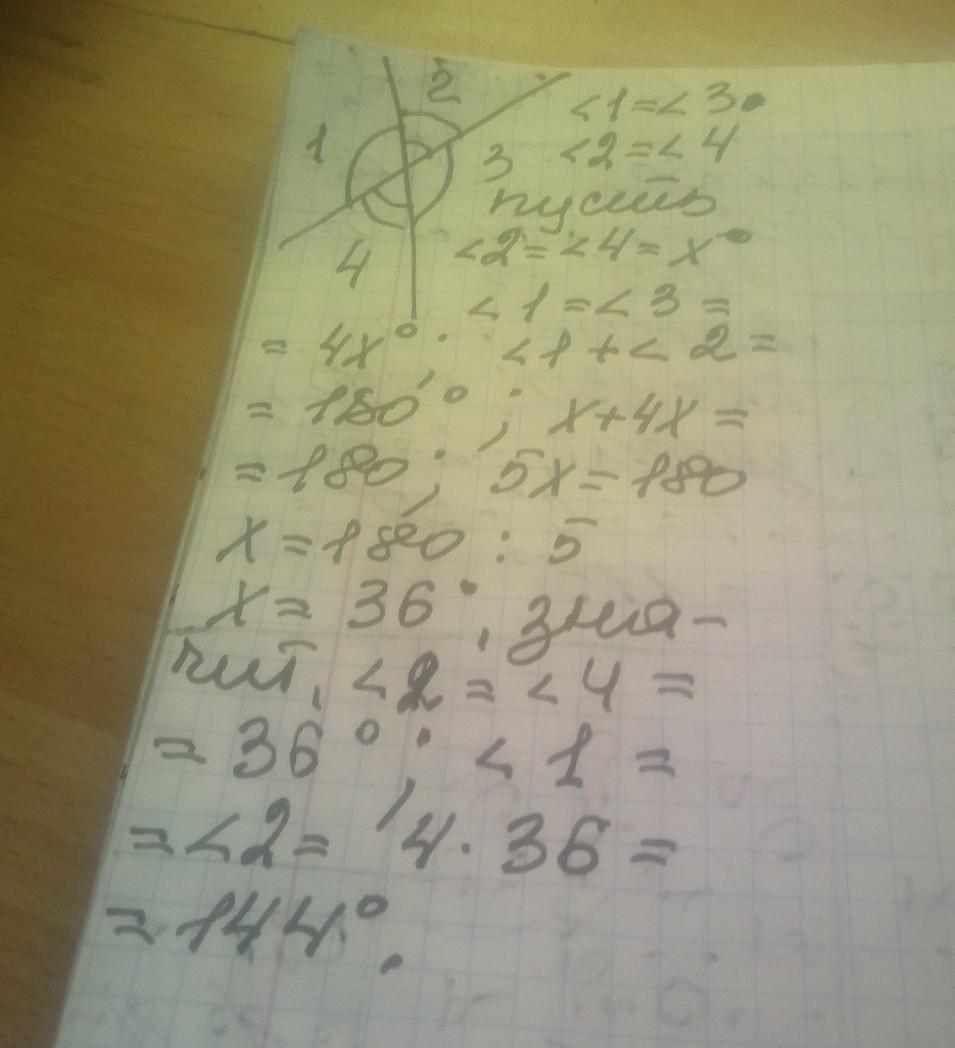 2
1
3
4
<1=<3
<2=<4
пусть
<2=<4=x°
<1=<3=
=4x°; <1+<2=
=180°; x+4x=
=180; 5x=180
x=180:5
x=36°, зна-
чит, <2=<4=
=36°; <1=
=<2= 4·36=
=144°.